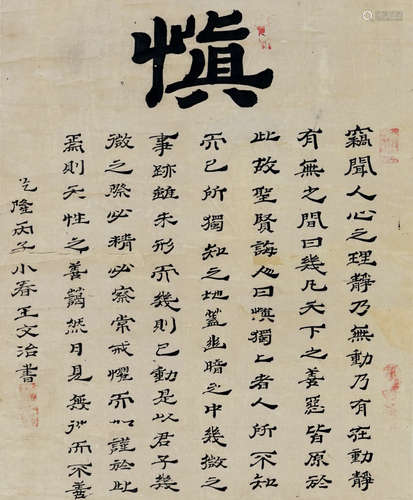 愼
竊聞人心之理靜乃無動乃有在動靜
有無之間曰幾凡天下之善惡皆原於
此故聖賢誨人曰愼獨〻者人所不知
而已所獨知之地蓋幽暗之中幾微之
事跡雖未形而幾則已動是以君子幾
微之際必精必察常戒懼而加謹於此
焉則天性之善藹然日見無往而不善
乾隆丙子小春王文治書